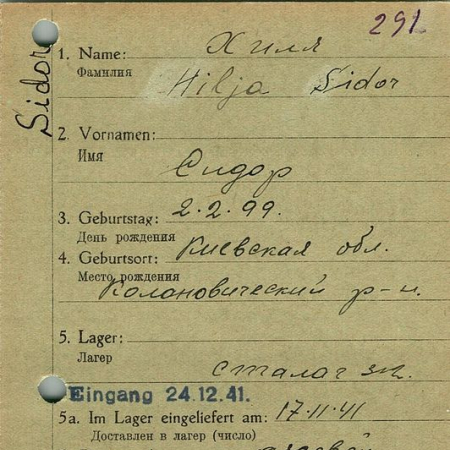 291
Sidor
Хиля
1. Name:
Фамилия
Hilja Sidor
2. Vornamen:
Имя
Сидор
3. Geburtstag: 2.2.99.
День рождения
4. Geburtsort: Киевская обл.
Место рождения
р-н.
5. Lager:
Лагер
сталаг
Eingang 24.12.41.
5a. Im Lager eingeliefert am: 17.11.41
Доставлен в лагер (число)